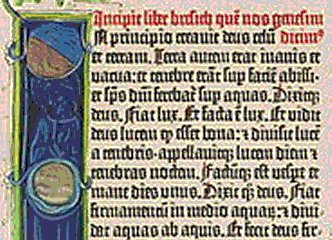 Incipit liber bresich quē nos genesim
A principio creavit deus celū dicim⁹
et terram. Terra autem erat inanis et
vacua: et tenebre erāt sup faciē abissi:
et sp̄s dñi ferebat̄ sup aquas. Dixitq;
deus. Fiat lux. Et facta ē lux. Et vidit
deus lucem q̄ esset bona: et divisit lucē
a tenebris· appellavitq; lucem diem et
tenebras noctem. Factūq; est vespe et
mane dies unus. Dixit q̄; deus. Fiat
firmamentū in medio aquaꝝ: et divi-
dat aquas ab aquis. Et fecit deus fir-